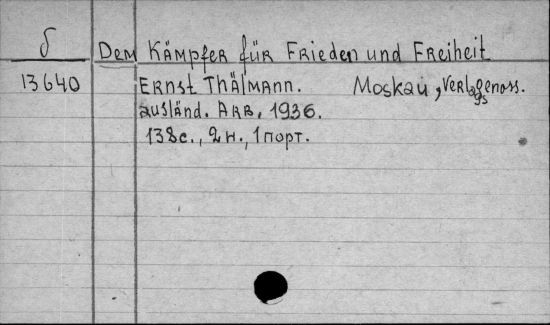 δ Dem Kämpfer für Frieden und Freiheit
13640 Ernst Thälmann. Moskau, Verlagsgenoss.
ausländ. Arb., 1936.
138с., 2 н., 1 порт.